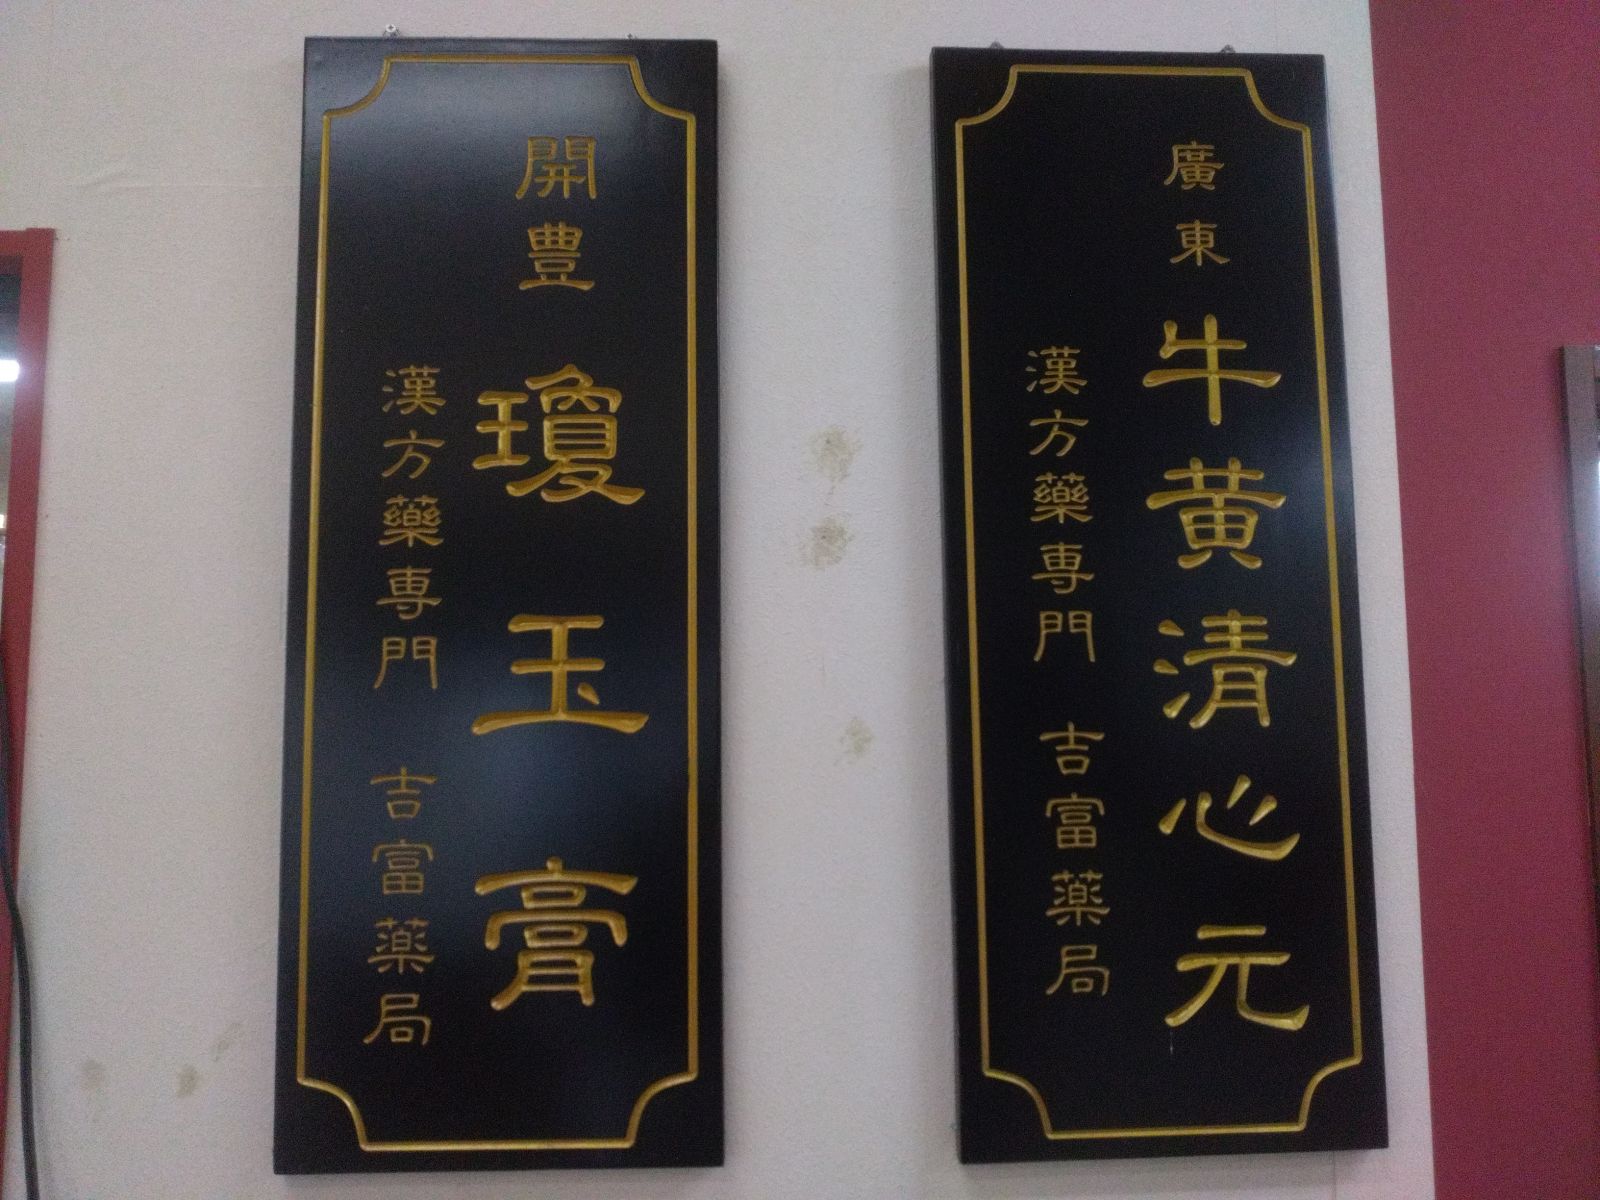 開豊
瓊玉膏
漢方藥専門 吉富薬局
廣東
牛黄清心元
漢方藥専門 吉富薬局